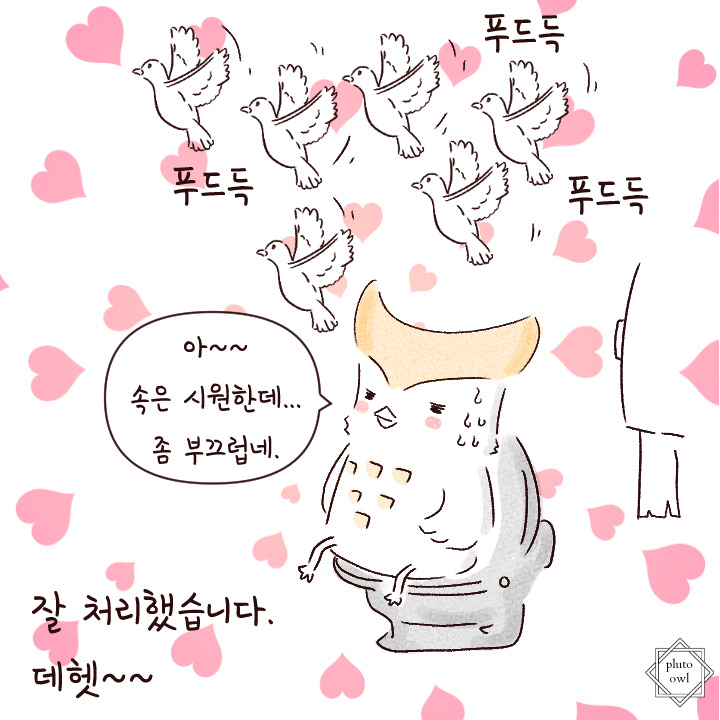 푸드득
푸드득
푸드득
아~~
속은 시원한데...
좀 부끄럽네.
잘 처리했습니다.
데헷~~
pluto
owl